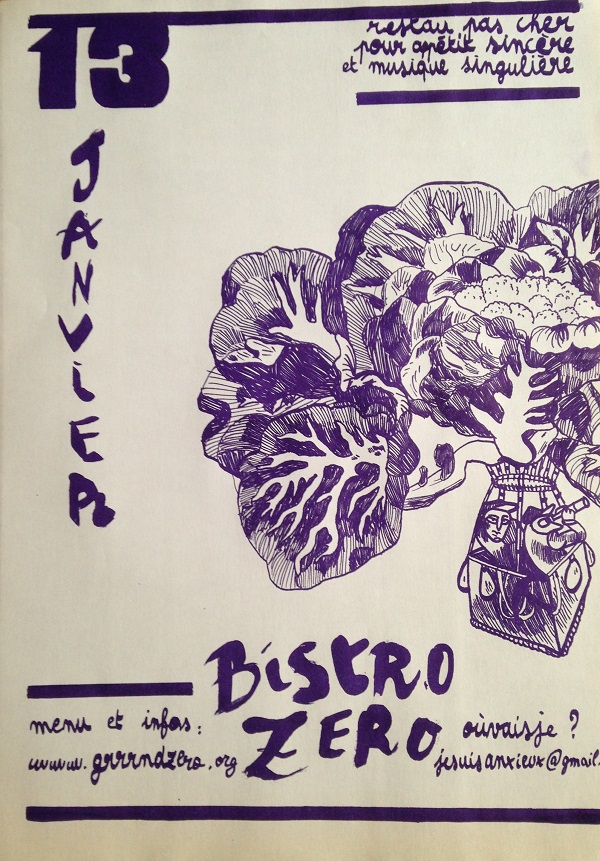 13
restau pas cher
pour appétit sincère
et musique singulière
JANVIER
BiSTRO
ZERO
menu et infos:
www.grrrndzero.org
oùvaisje ?
jesuisanxieux@gmail.